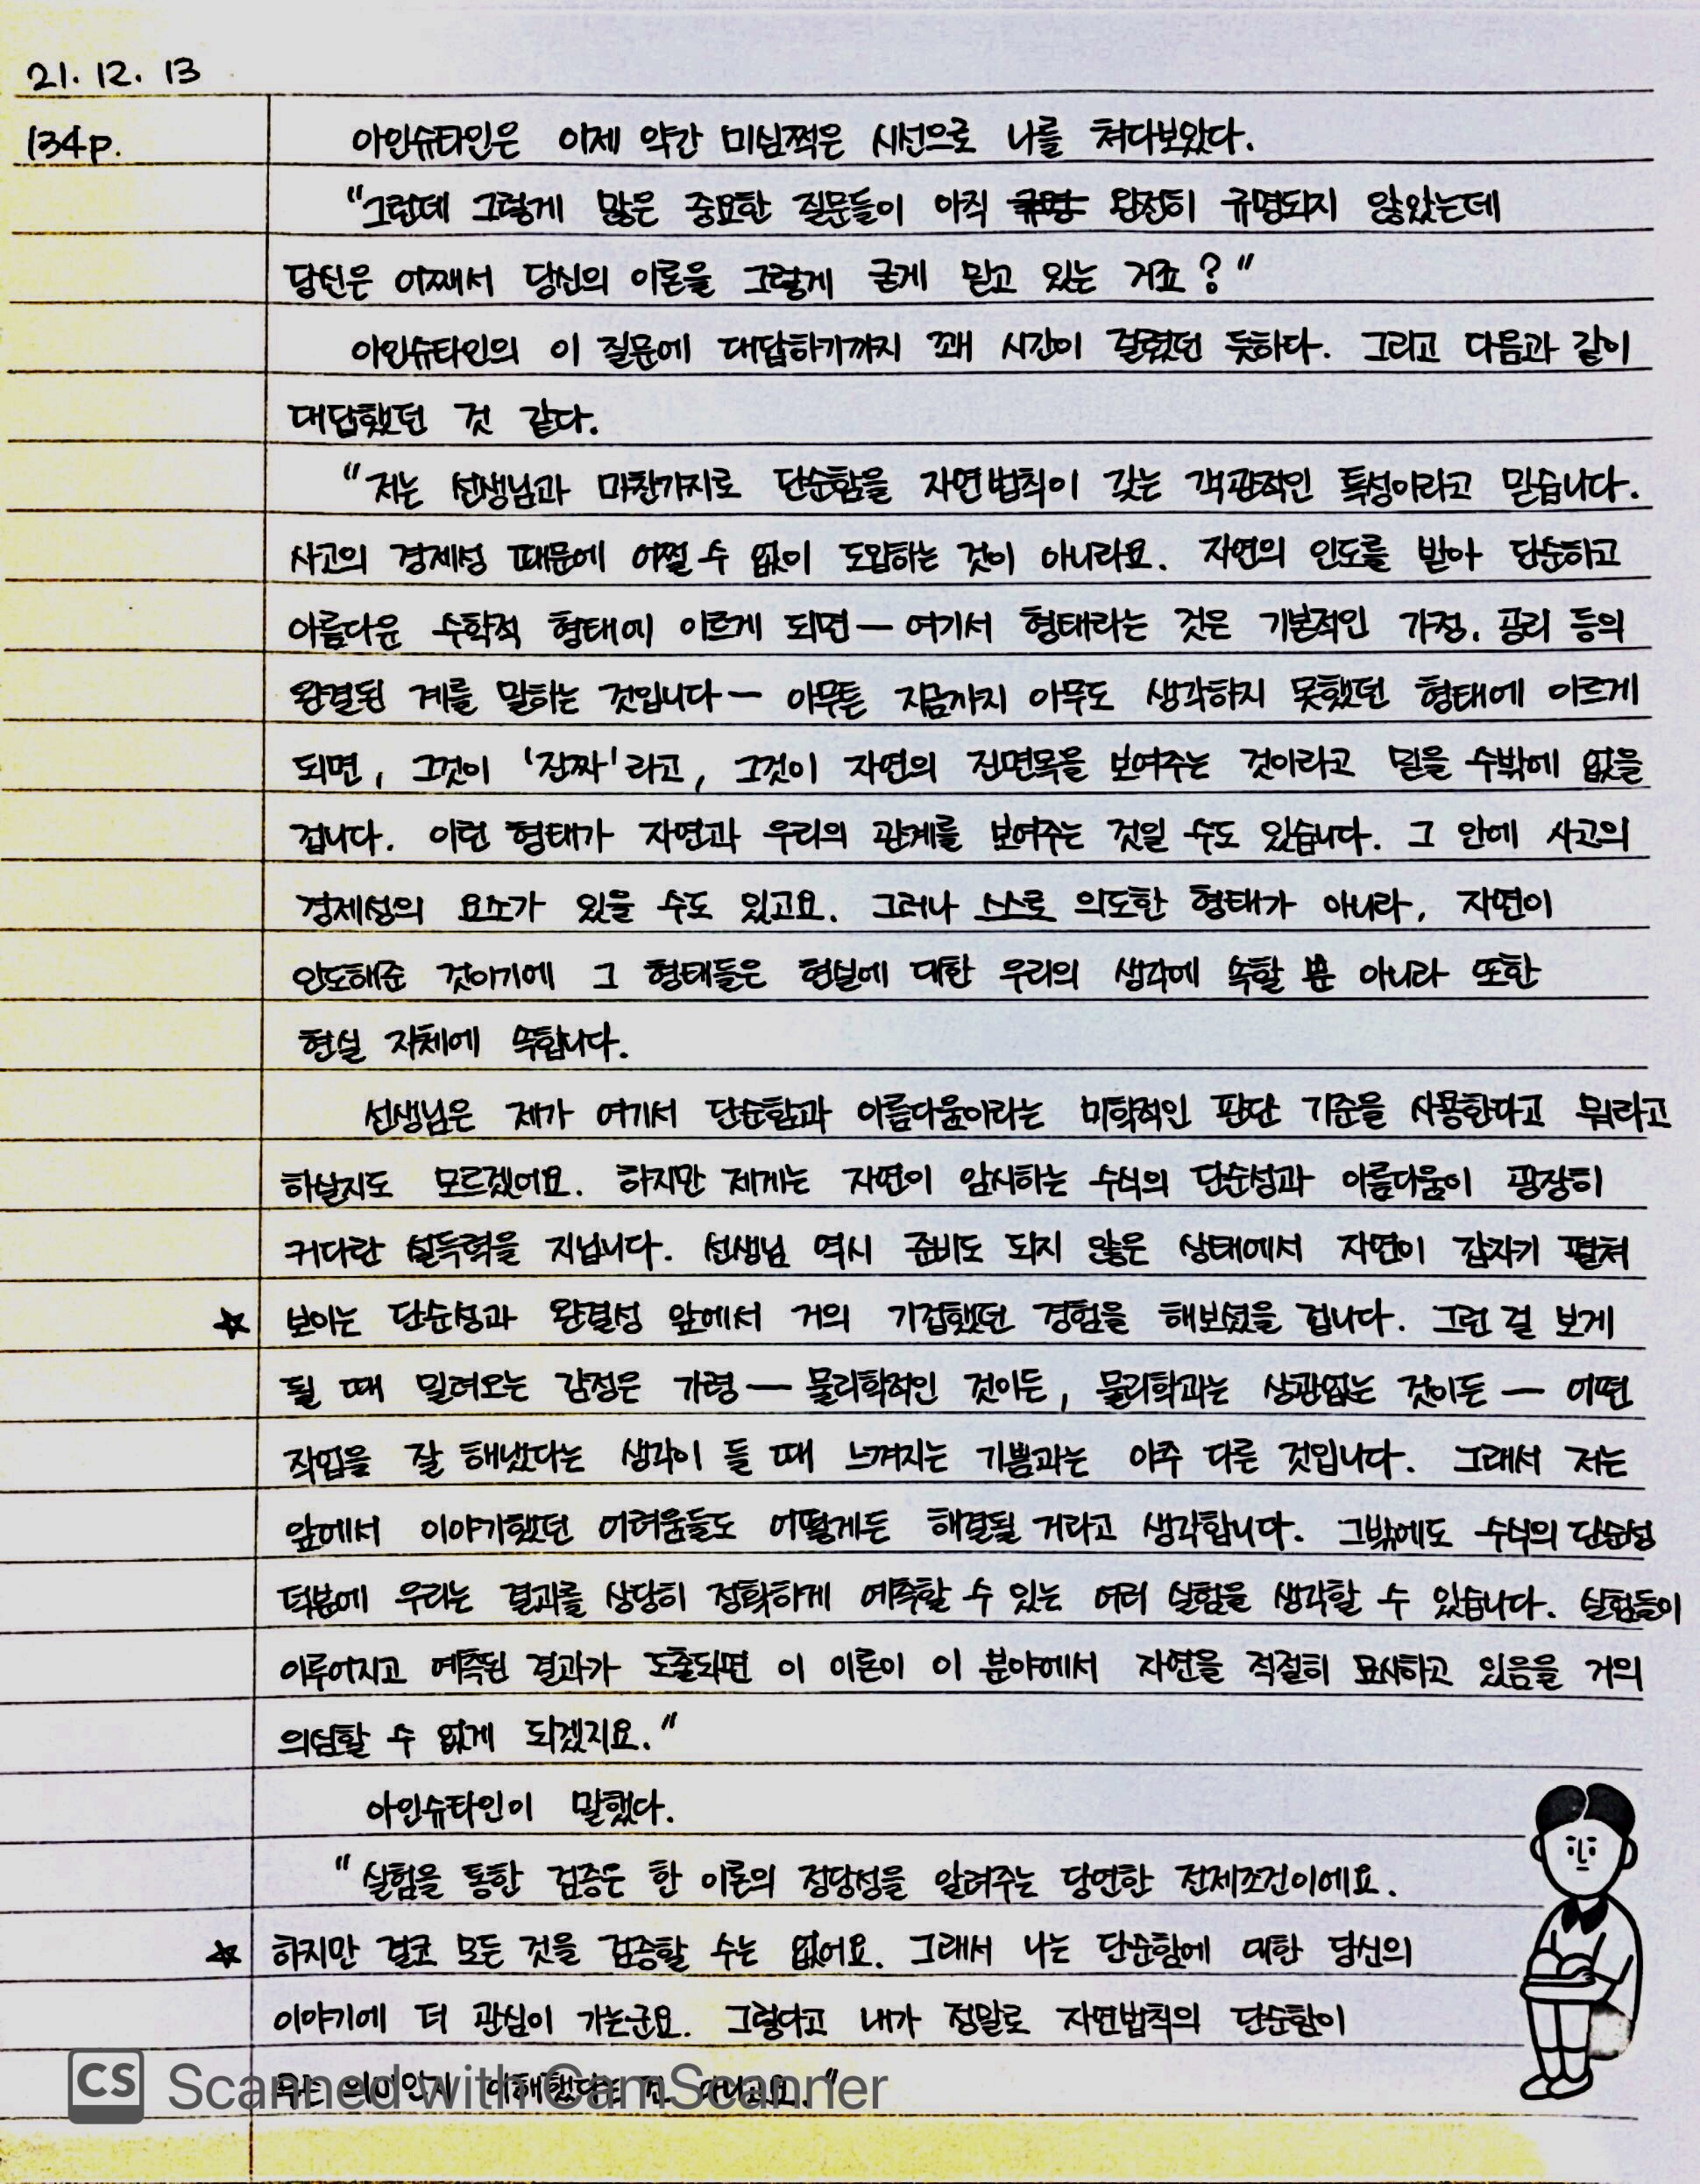 21. 12. 13
134p.
아인슈타인은 이제 약간 미심쩍은 시선으로 나를 쳐다보았다.
"그런데 그렇게 많은 중요한 질문들이 아직 규명 완전히 규명되지 않았는데
당신은 어째서 당신의 이론을 그렇게 굳게 믿고 있는 거죠?"
아인슈타인의 이 질문에 대답하기까지 꽤 시간이 걸렸던 듯하다. 그리고 다음과 같이
대답했던 것 같다.
"저는 선생님과 마찬가지로 단순함을 자연법칙이 갖는 객관적인 특성이라고 믿습니다.
사고의 경제성 때문에 어쩔 수 없이 도입하는 것이 아니라요. 자연의 인도를 받아 단순하고
아름다운 수학적 형태에 이르게 되면 — 여기서 형태라는 것은 기본적인 가정, 공리 등의
완결된 계를 말하는 것입니다 — 아무튼 지금까지 아무도 생각하지 못했던 형태에 이르게
되면, 그것이 '진짜'라고, 그것이 자연의 진면목을 보여주는 것이라고 믿을 수밖에 없을
겁니다. 이런 형태가 자연과 우리의 관계를 보여주는 것일 수도 있습니다. 그 안에 사고의
경제성의 요소가 있을 수도 있고요. 그러나 스스로 의도한 형태가 아니라, 자연이
인도해준 것이기에 그 형태들은 현실에 대한 우리의 생각에 속할 뿐 아니라 또한
현실 자체에 속합니다.
선생님은 제가 여기서 단순함과 아름다움이라는 미학적인 판단 기준을 사용한다고 뭐라고
하실지도 모르겠어요. 하지만 제게는 자연이 암시하는 수식의 단순성과 아름다움이 굉장히
커다란 설득력을 지닙니다. 선생님 역시 준비도 되지 않은 상태에서 자연이 갑자기 펼쳐
☆ 보이는 단순성과 완결성 앞에서 거의 기겁했던 경험을 해보셨을 겁니다. 그런 걸 보게
될 때 밀려오는 감정은 가령 — 물리학적인 것이든, 물리학과는 상관없는 것이든 — 어떤
작업을 잘 해냈다는 생각이 들 때 느껴지는 기쁨과는 아주 다른 것입니다. 그래서 저는
앞에서 이야기했던 어려움들도 어떻게든 해결될 거라고 생각합니다. 그밖에도 수식의 단순성
덕분에 우리는 결과를 상당히 정확하게 예측할 수 있는 여러 실험을 생각할 수 있습니다. 실험들이
이루어지고 예측된 결과가 도출되면 이 이론이 이 분야에서 자연을 적절히 묘사하고 있음을 거의
의심할 수 없게 되겠지요."
아인슈타인이 말했다.
"실험을 통한 검증은 한 이론의 정당성을 알려주는 당연한 전제조건이에요.
☆ 하지만 결코 모든 것을 검증할 수는 없어요. 그래서 나는 단순함에 대한 당신의
이야기에 더 관심이 가는군요. 그렇다고 내가 정말로 자연법칙의 단순함이
무슨 의미인지 이해했다는 건 아니고요."
CS Scanned with CamScanner